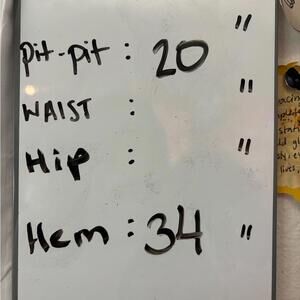 pit-pit : 20 "
WAIST : "
Hip : "
Hem : 34 "